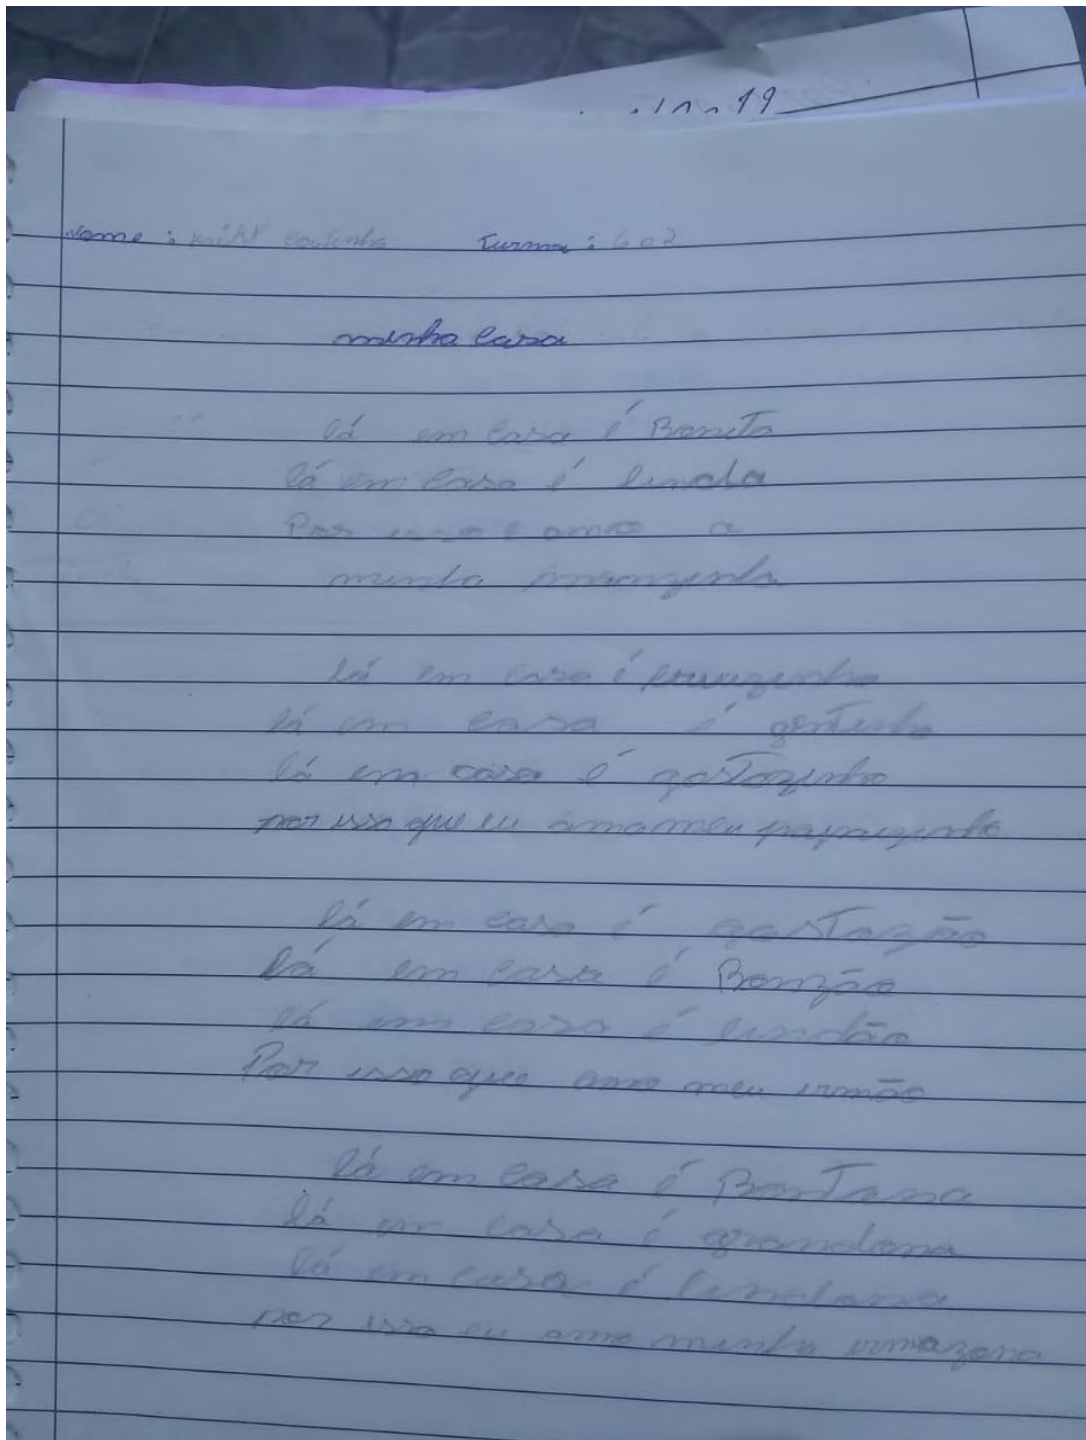 19
Nome : Coutinho Turma : 602
minha casa
lá em casa é Bonita
lá em casa é linda
Por isso é amo a
minha mamãezinha
lá em casa é
lá em casa é
lá em casa é gostozinho
por isso que eu ama meu papaizinho
lá em casa é gostozão
lá em casa é Bonzão
lá em casa é lindão
Por isso que amo meu irmão
lá em casa é
lá em casa é grandona
lá em casa é lindona
por isso eu amo minha irmazona